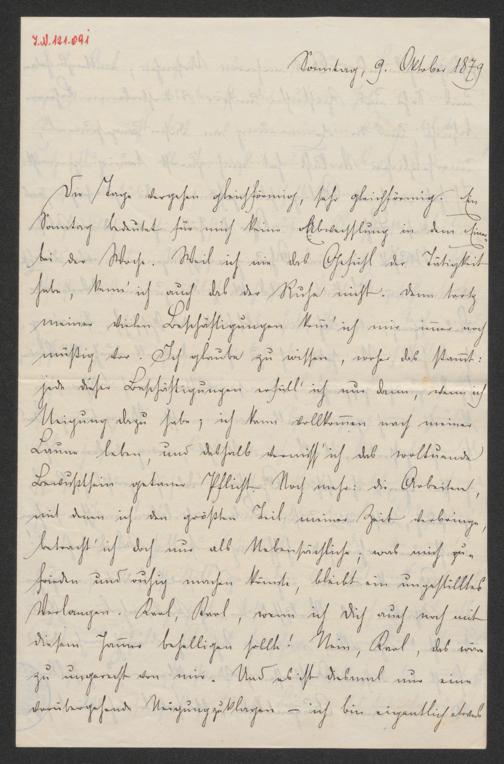 I.N. 121.091
Sonntag, 9. Oktober 1879
Die Tage vergehen gleichförmig, sehr gleichförmig. Ein
Sonntag bedeutet für mich keine Abwechslung in dem
bei der Woche. Weil ich nie das Gefühl der Tätigkeit
habe, kenn' ich auch das der Ruhe nicht. Denn trotz
meiner vielen Beschäftigungen kom̄' ich mir im̄er noch
müßig vor. Ich glaube zu wissen, woher das stam̄t:
jede dieser Beschäftigungen erfüll' ich nur dann, wenn ich
Neigung dazu habe; ich kann vollkom̄en nach meiner
Laune leben, und deshalb vermiss' ich das woltuende
Bewußtsein getaner Pflicht. Noch mehr: die Arbeiten,
mit denen ich den größten Teil meiner Zeit verbringe,
betracht' ich doch nur als Nebensächliche; was mich zu-
frieden und ruhig machen könnte, bleibt ein ungestilltes
Verlangen. Karl, Karl, wenn ich Dich auch noch mit
diesem Jam̄er behelligen sollte! Nein, Karl, das wäre
zu ungerecht von mir. Und es ist diesmal nur eine
vorübergehende Neigung zu klagen – ich bin eigentlich etwas